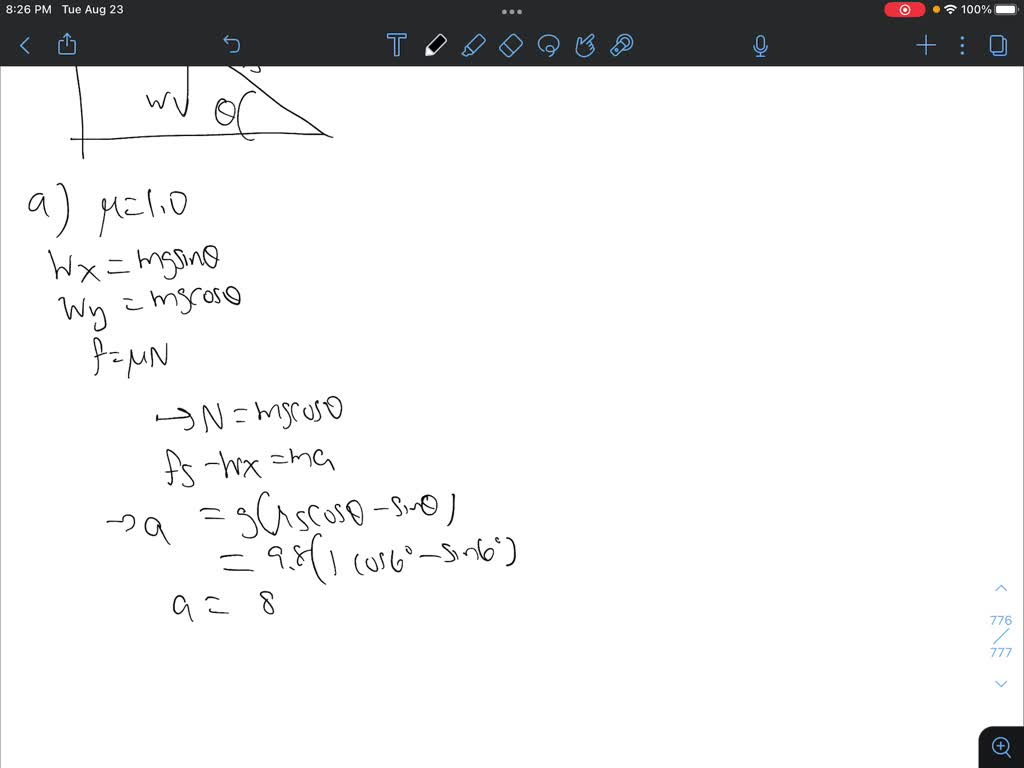 8:26 PM Tue Aug 23
100%
T
W
θ
a) μ=1.0
Wx = mgsinθ
Wy = mgcosθ
f=μN
→ N = mgcosθ
fs - Wx = ma
→ a = g(μscosθ - sinθ)
= 9.8(1 cos6° - sin6°)
a = 8
776
777